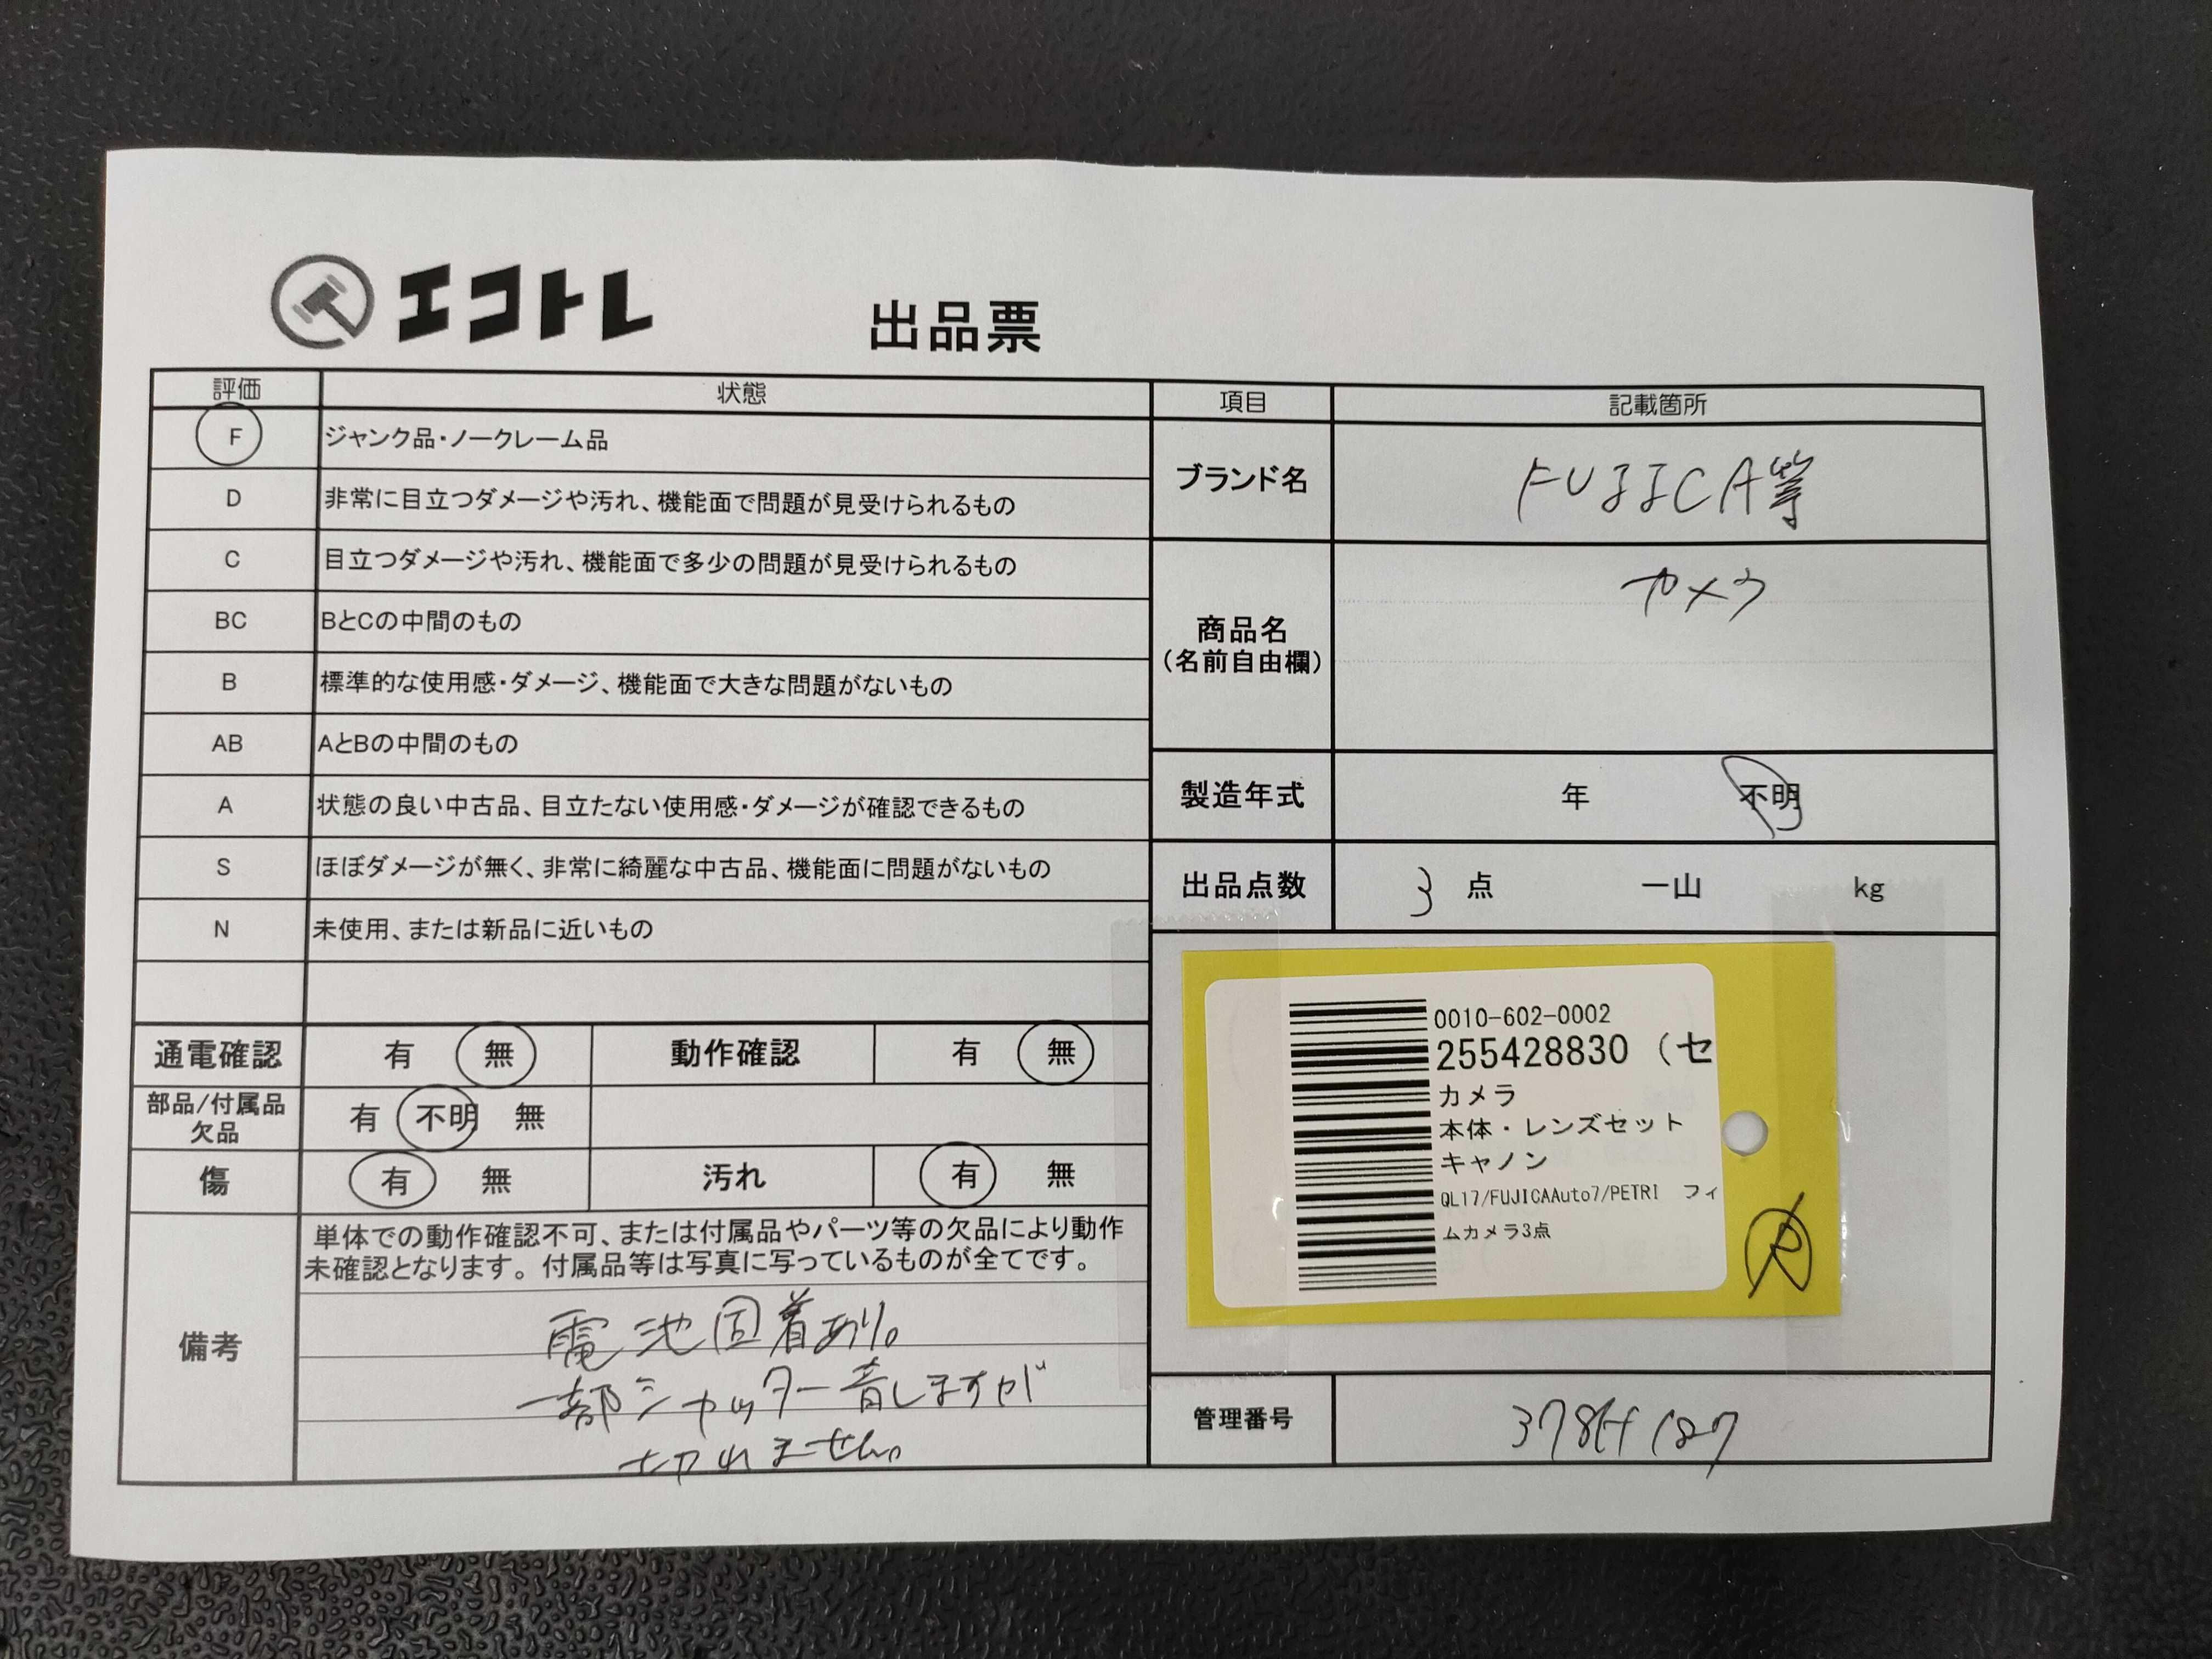 エコトレ
出品票
評価 状態
F ジャンク品・ノークレーム品
D 非常に目立つダメージや汚れ、機能面で問題が見受けられるもの
C 目立つダメージや汚れ、機能面で多少の問題が見受けられるもの
BC BとCの中間のもの
B 標準的な使用感・ダメージ、機能面で大きな問題がないもの
AB AとBの中間のもの
A 状態の良い中古品、目立たない使用感・ダメージが確認できるもの
S ほぼダメージが無く、非常に綺麗な中古品、機能面に問題がないもの
N 未使用、または新品に近いもの
通電確認 有 無 動作確認 有 無
部品/付属品
欠品
有 不明 無
傷 有 無 汚れ 有 無
備考
単体での動作確認不可、または付属品やパーツ等の欠品により動作
未確認となります。付属品等は写真に写っているものが全てです。
電池固着あり。
一部シャッター音しますが
切れません。
項目 記載箇所
ブランド名 FUJICA等
商品名
(名前自由欄)
カメラ
製造年式 年 不明
出品点数 3 点 一山 kg
0010-602-0002
255428830 (セ
カメラ
本体・レンズセット
キャノン
QL17/FUJICAAuto7/PETRI フィ
ムカメラ3点
管理番号